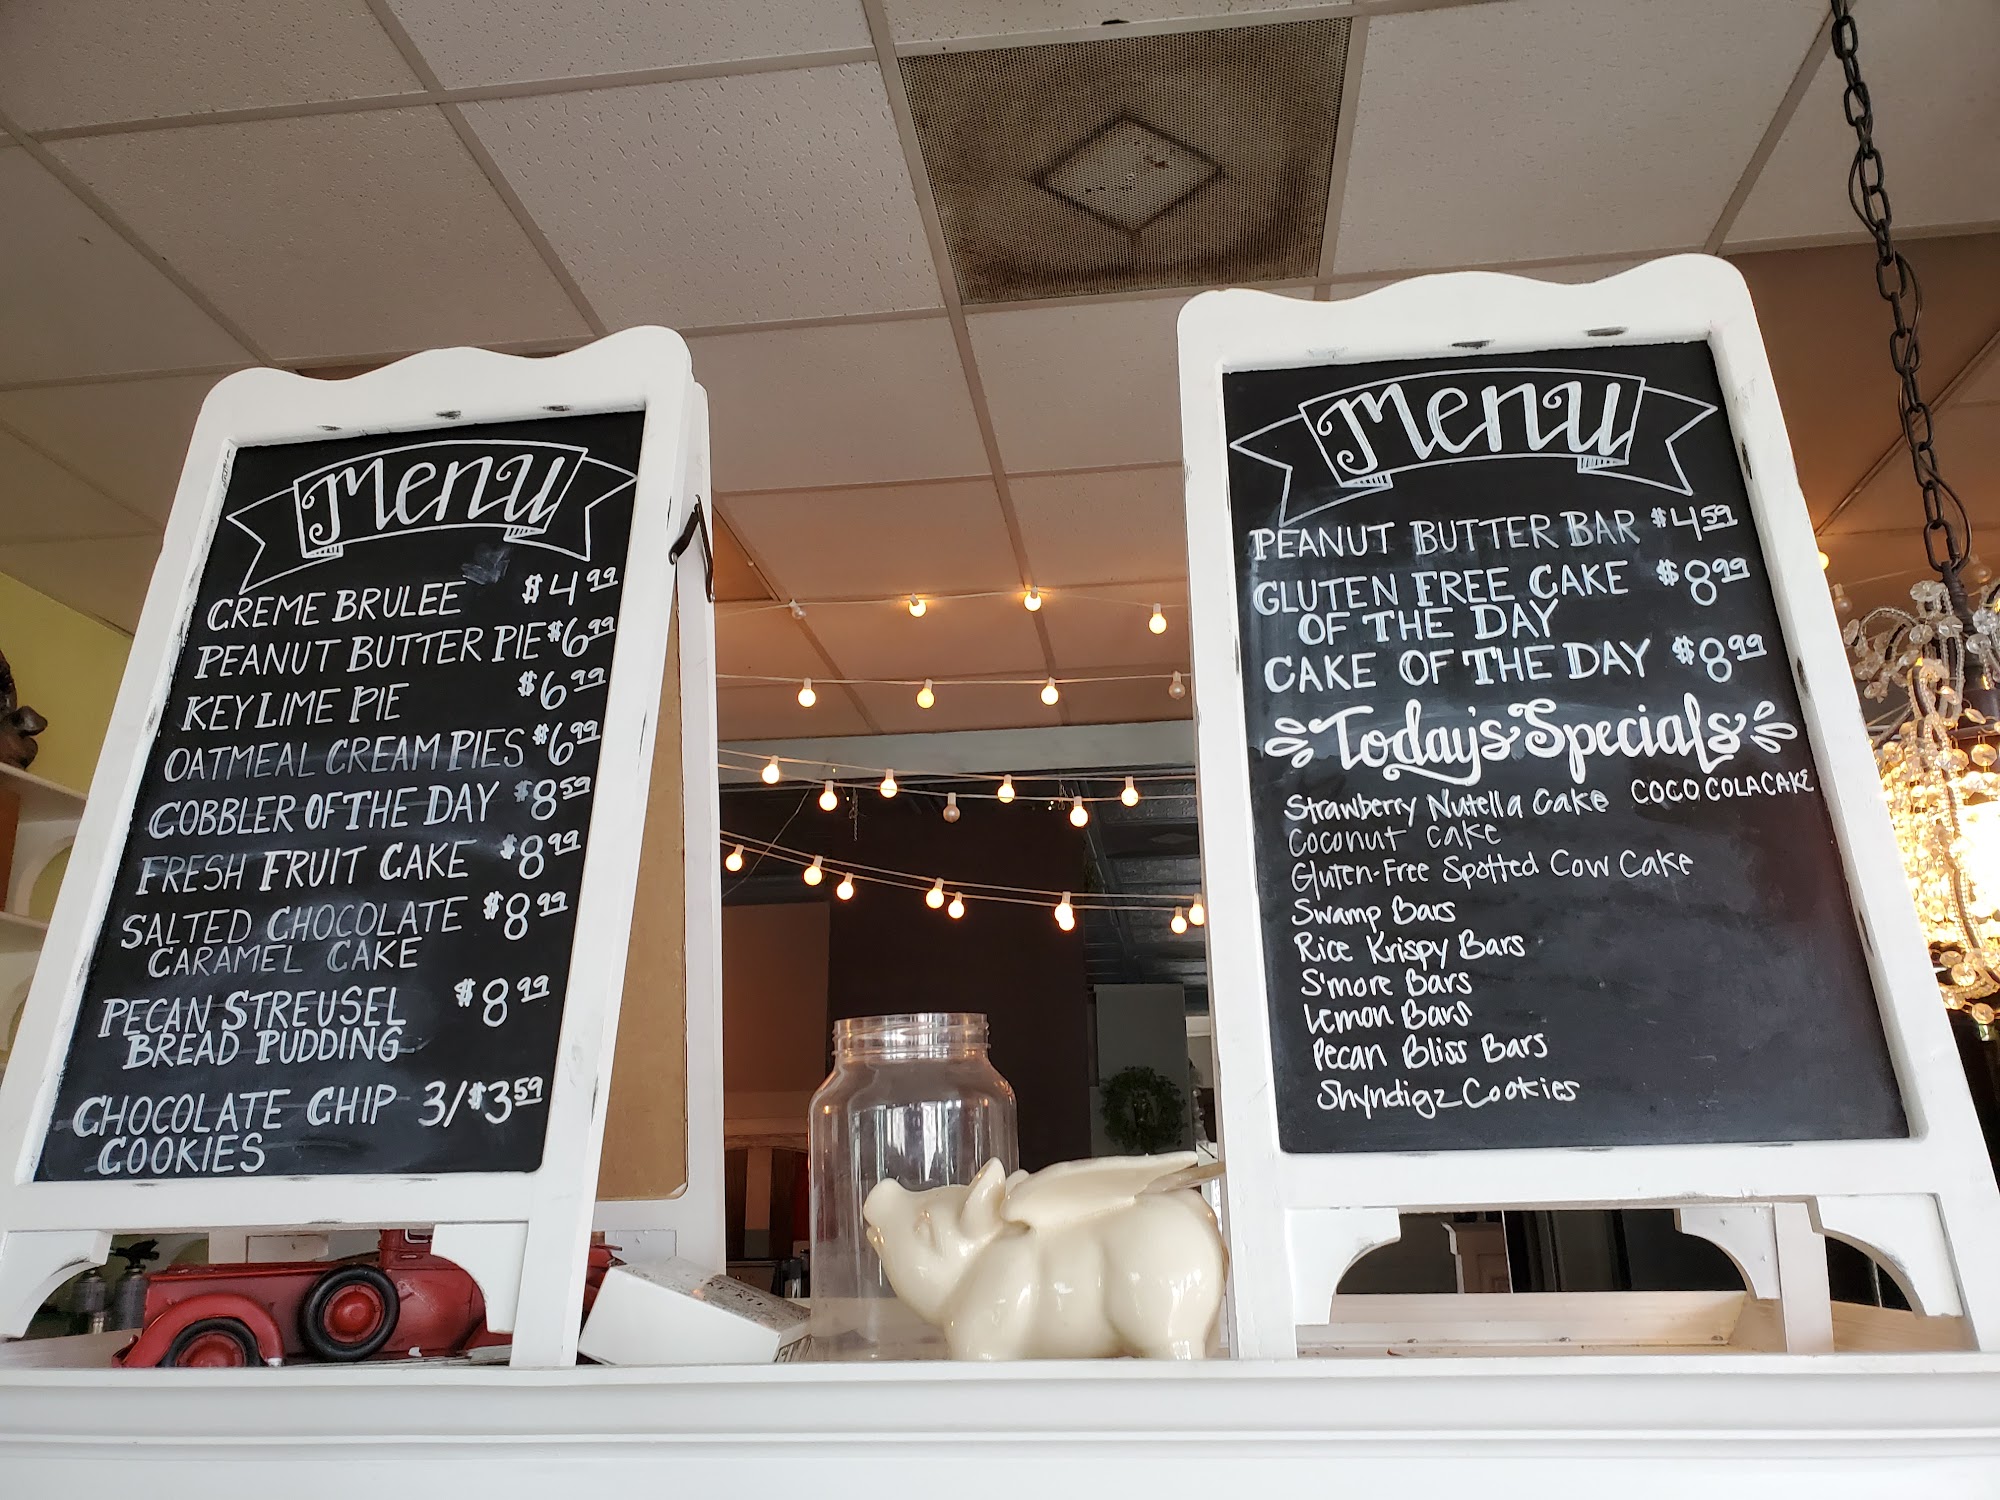 Menu
CREME BRULEE $4.99
PEANUT BUTTER PIE $6.99
KEY LIME PIE $6.99
OATMEAL CREAM PIES $6.99
COBBLER OF THE DAY $8.59
FRESH FRUIT CAKE $8.99
SALTED CHOCOLATE $8.99
CARAMEL CAKE
PECAN STREUSEL $8.99
BREAD PUDDING
CHOCOLATE CHIP 3/$3.59
COOKIES
Menu
PEANUT BUTTER BAR $4.59
GLUTEN FREE CAKE $8.99
OF THE DAY
CAKE OF THE DAY $8.99
Today's Specials
Strawberry Nutella Cake COCO COLA CAKE
Coconut Cake
Gluten-Free Spotted Cow Cake
Swamp Bars
Rice Krispy Bars
S'more Bars
Lemon Bars
Pecan Bliss Bars
Shyndigz Cookies